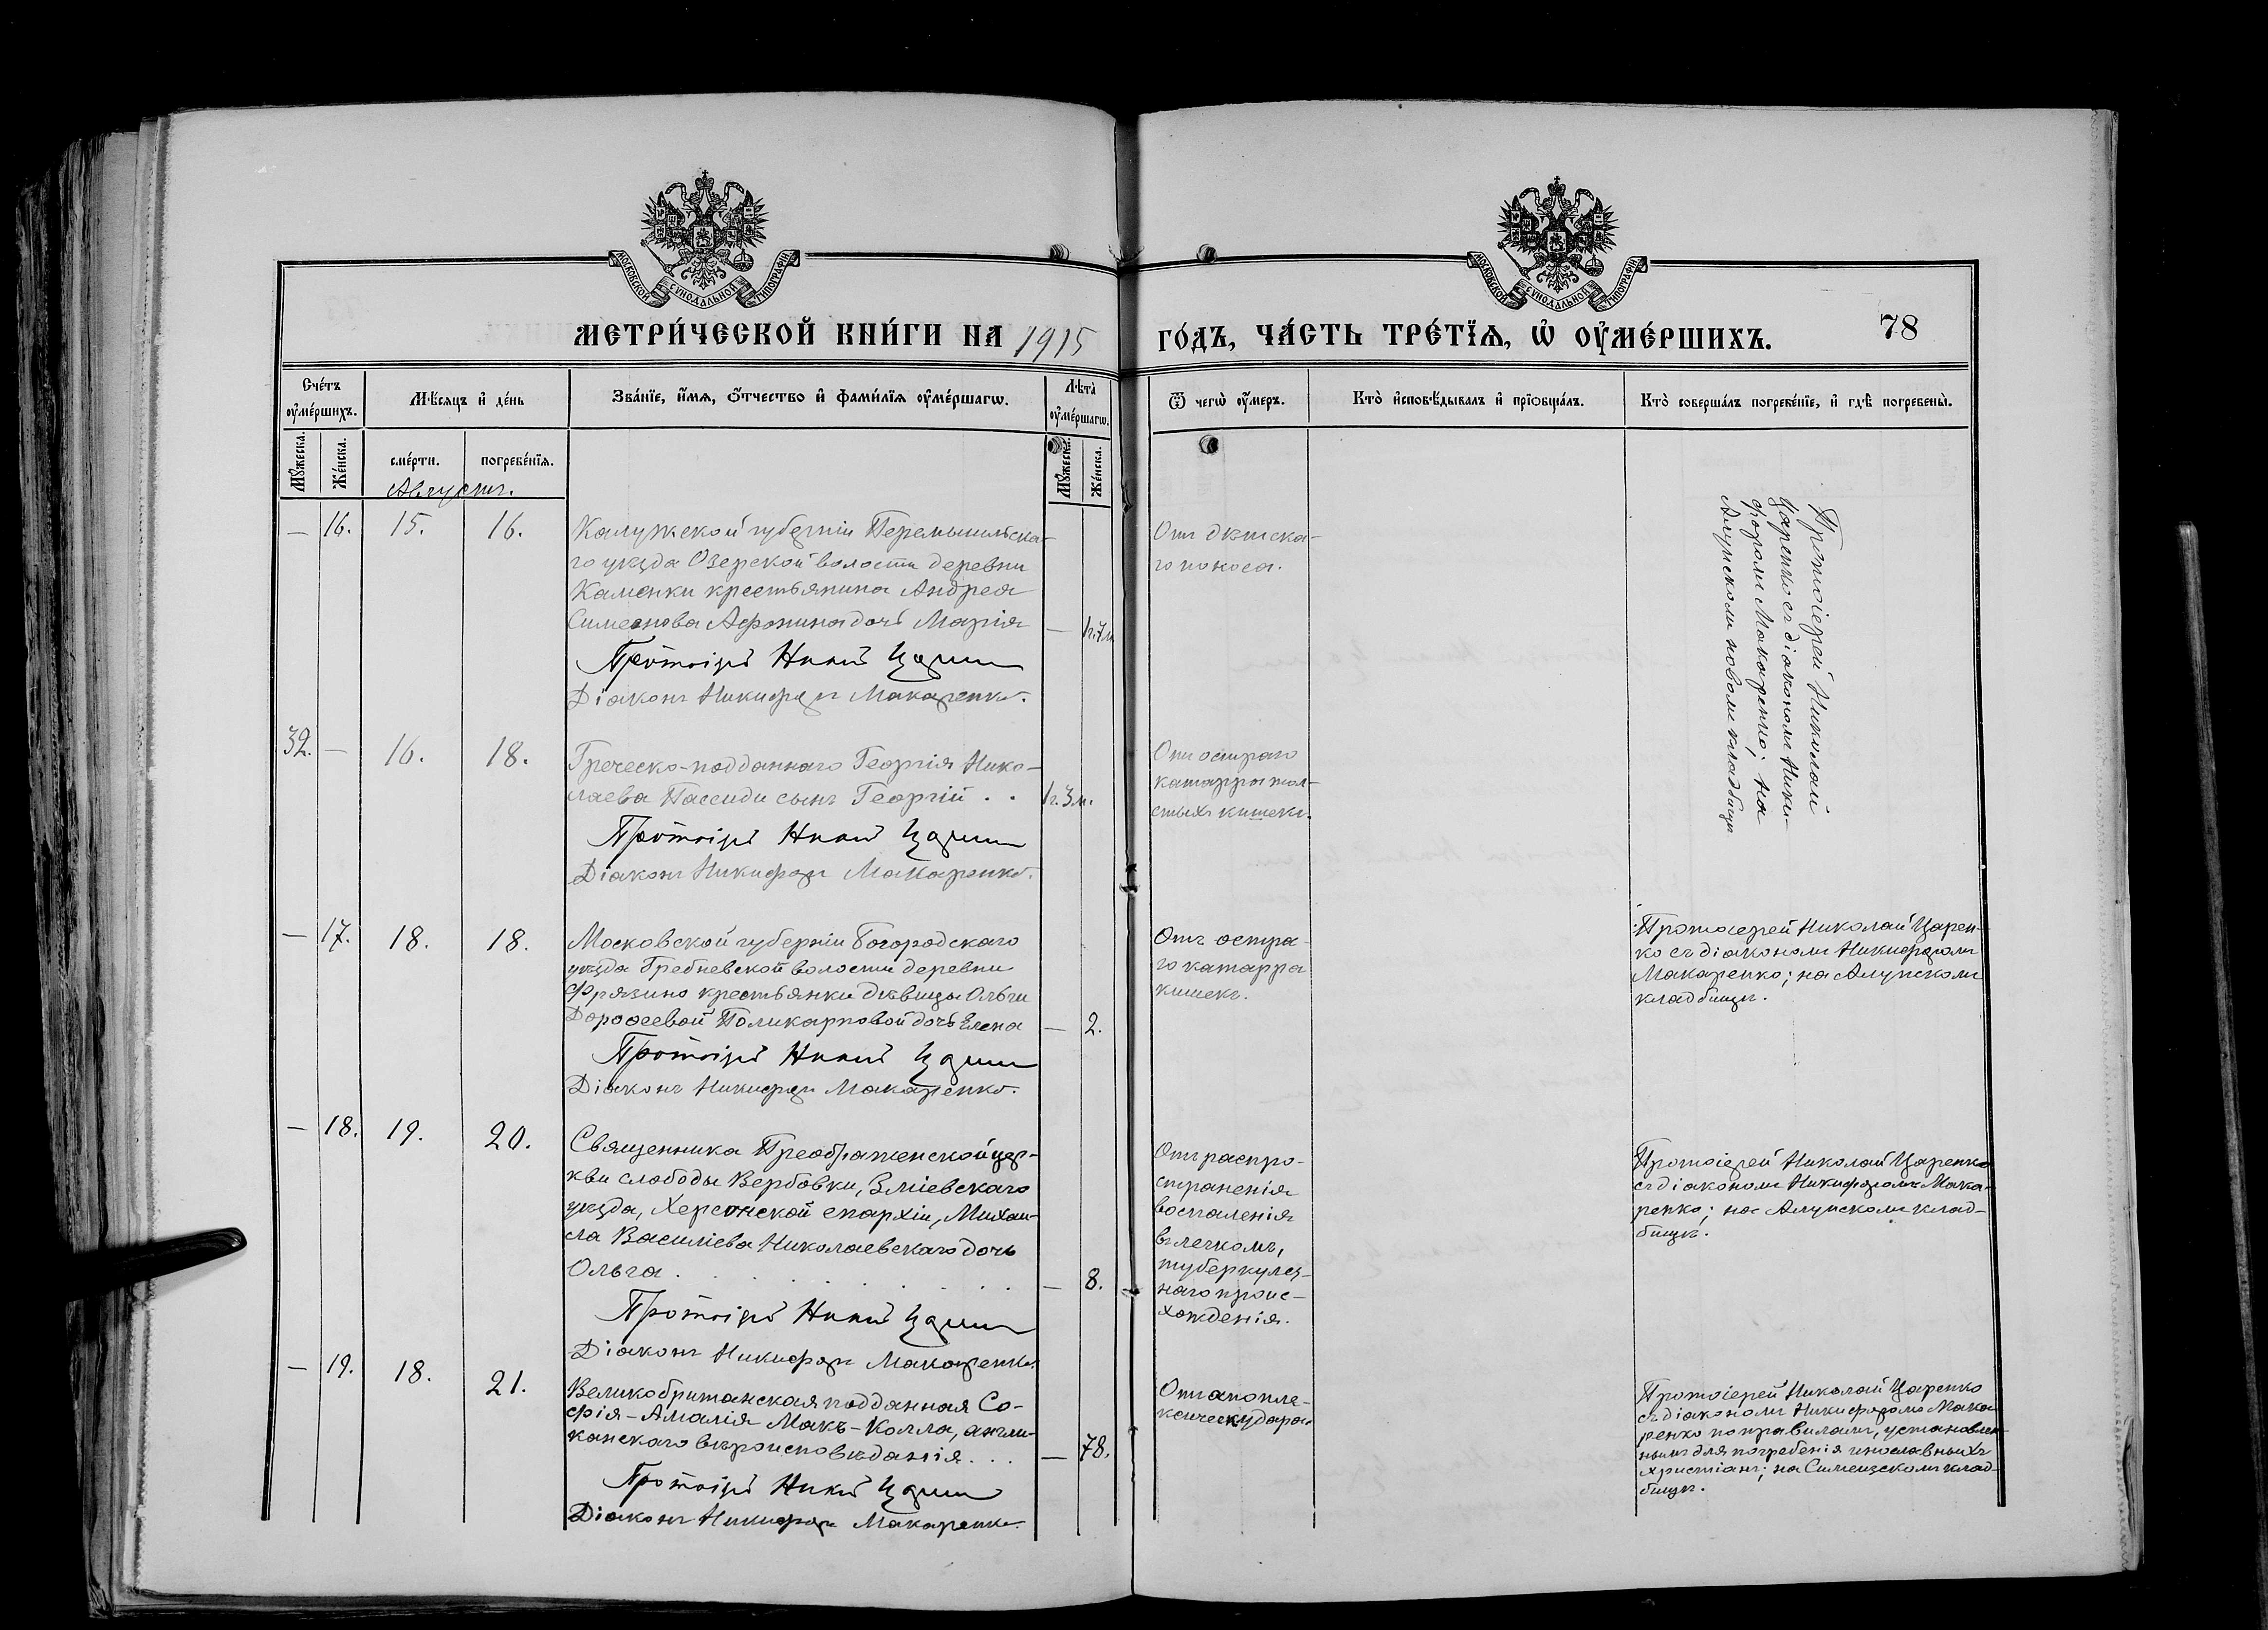 МОСКОВСКОЙ СѴНОДАЛЬНОЙ ТИПОГРАФІИ
МОСКОВСКОЙ СѴНОДАЛЬНОЙ ТИПОГРАФІИ
МЕТРИ́ЧЕСКОЙ КНИ́ГИ НА 1915
ГО́ДЪ, ЧА́СТЬ ТРЕ́ТЇѦ, Ѡ҆ ОУ҆МЕ́РШИХЪ.
78
Сче́тъ оу҆ме́ршихъ.
Мѣ́сѧцъ и҆ де́нь
Зва́нїе, и҆́мѧ, ѻ҆́тчество и҆ фами́лїѧ оу҆ме́ршагѡ.
Лѣта̀ оу҆ме́ршагѡ.
Ѿ чегѡ̀ оу҆́меръ.
Кто̀ и҆сповѣ́дывалъ и҆ прїѻбща́лъ.
Кто̀ соверша́лъ погребе́нїе, и҆ гдѣ̀ погребены̀.
Мꙋ́жеска.
Же́нска.
сме́рти.
погребе́нїѧ.
Мꙋ́жеска.
Же́нска.
Августъ.
— 16. 15. 16.
Калужской губерніи Перемышльска-
го уѣзда Озерской волости деревни
Каменки крестьянина Андрея
Симеонова Афонина дочь Марія — 1г.7м.
Протоіерей Никол Царен
Діаконъ Никифоръ Макаренко.
Отъ дѣтска-
го поноса.
Протоіерей Николай
Царенко съ діакономъ Ники-
форомъ Макаренко; на
Алупскомъ новомъ кладбищѣ
32. — 16. 18.
Греческо-подданнаго Георгія Нико-
лаева Пассиди сынъ Георгій . . 1г.3м.
Протоіерей Никол Царен
Діаконъ Никифоръ Макаренко.
Отъ остраго
катарра тол-
стыхъ кишекъ.
— 17. 18. 18.
Московской губерніи Богородскаго
уѣзда Гребневской волости деревни
Фрязино крестьянки дѣвицы Ольги
Дороѳеевой Поликарповой дочь Елена — 2.
Протоіерей Никол Царен
Діаконъ Никифоръ Макаренко.
Отъ остра-
го катарра
кишекъ.
Протоіерей Николай Царен-
ко съ діакономъ Никифоромъ
Макаренко; на Алупскомъ
кладбищѣ.
— 18. 19. 20.
Священника Преображенской цер-
кви слободы Вербовки, Зміевскаго
уѣзда, Херсонской епархіи, Михаи-
ла Василіева Николаевскаго дочь
Ольга . . . . . . . . — 8.
Протоіерей Никол Царен
Діаконъ Никифоръ Макаренко.
Отъ распро-
страненія
воспаленія
въ легкомъ,
туберкулез-
наго проис-
хожденія.
Протоіерей Николай Царенко
съ діакономъ Никифоромъ Мака-
ренко; на Алупскомъ клад-
бищѣ.
— 19. 18. 21.
Великобританская подданная Со-
фія-Амалія Макъ-Колла, англи-
канскаго вѣроисповѣданія . . . — 78.
Протоіерей Никол Царен
Діаконъ Никифоръ Макаренко.
Отъ апопле-
ксическ. удара
Протоіерей Николай Царенко
съ діакономъ Никифоромъ Мака-
ренко по правиламъ, установлен-
нымъ для погребенія инославныхъ
христіанъ; на Симеизскомъ клад-
бищѣ.